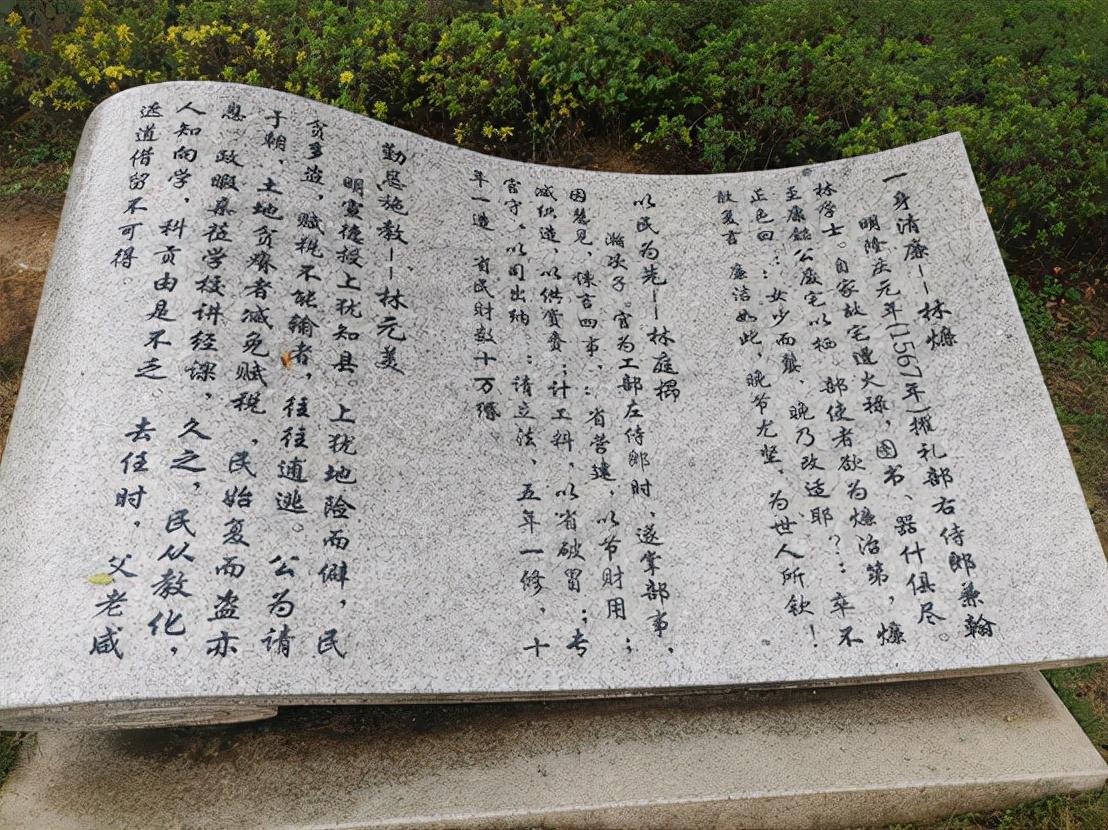 一身清廉——林燫
明隆庆元年(1567年)擢礼部右侍郎兼翰
林学士。自家故宅遭火禄，图书、器什俱尽。
至康懿公废宅以栖。部使者欲为燫治第，燫
正色曰：：女少而嫠、晚乃改适耶？：卒不
敢复言。廉洁如此，晚节尤坚，为世人所钦！
以民为先——林庭㭿
瀚次子。官为工部左侍郎时、遂掌部事，
因慧见，陈言四事，：省营建，以节财用；
减织造、以供赏赉；计工料，以省破冒；专
官守，以司出纳。：请立法、五年一修，十
年一造，省民财数十万缗。
勤恩施教——林元美
明宣德授上犹知县。上犹地险而僻，民
贫多盗，赋税不能输者，往往逋逃。公为请
于朝、土地贫瘠者减免赋税，民始复而盗亦
息。政暇桑莅学校讲经课，久之，民从教化，
人知向学，科贡由是不乏。去任时，父老咸
遮道借留不可得。